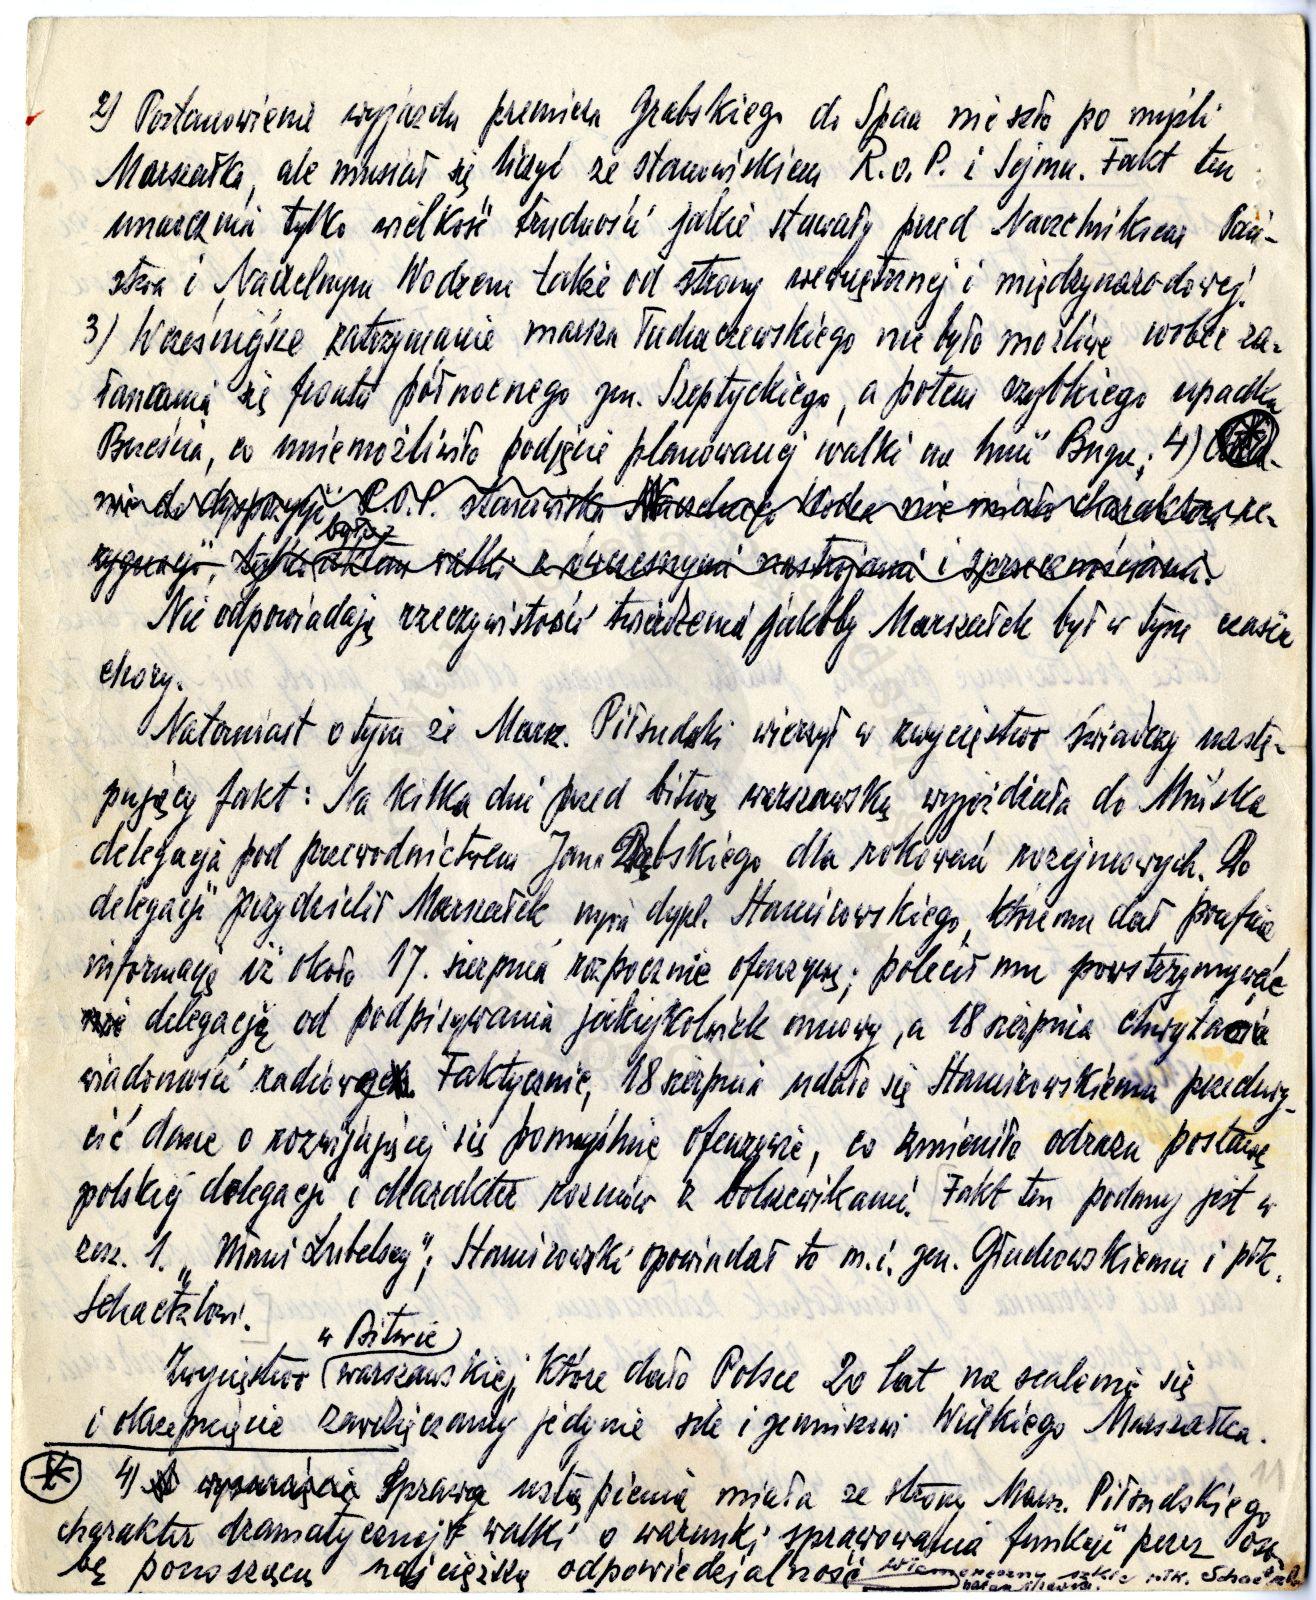 2) Postanowienie wyjazdu premiera Grabskiego do Spaa nie szło po myśli
Marszałka, ale musiał się liczyć ze stanowiskiem R.O.P. i Sejmu. Fakt ten
unaocznia tylko wielkość trudności jakie stawały przed Naczelnikiem Pań-
stwa i Naczelnym Wodzem także od strony wewnętrznej i międzynarodowej.
3) Wcześniejsze zatrzymanie marszu Tuchaczewskiego nie było możliwe wobec za-
łamania się frontu północnego gen. Szeptyckiego, a potem szybkiego upadku
Brześcia, co uniemożliwiło podjęcie planowanej walki na linii Bugu; 4)
nie do dyspozycji R.O.P. stanowiska Naczelnego Wodza nie miało charakteru re-
zygnacji, tylko był walki z ówczesnymi nastrojami i sprzecznościami.
Nie odpowiadają rzeczywistości twierdzenia jakoby Marszałek był w tym czasie
chory.
Natomiast o tym że Marsz. Piłsudski wierzył w zwycięstwo świadczy nastę-
pujący fakt: Na kilka dni przed bitwą warszawską wyjeżdżała do Mińska
delegacja pod przewodnictwem Jana Dąbskiego dla rokowań rozejmowych. Do
delegacji przydzielił Marszałek mjra dypl. Stamirowskiego, któremu dał poufnie
informację iż około 17. sierpnia rozpocznie ofenzywę; polecił mu powstrzymywać
delegację od podpisywania jakiejkolwiek umowy, a 18 sierpnia chwytanie
wiadomości radiowych. Faktycznie, 18 sierpnia udało się Stamirowskiemu przechwy-
cić dane o rozwijającej się pomyślnie ofenzywie, co zmieniło odrazu postawę
polskiej delegacji i charakter rozmów z bolszewikami. [Fakt ten podany jest w
zesz. 1. „Mówi Lubelscy”; Stamirowski opowiadał to m.i. gen. Głuchowskiemu i płk.
Schaetzlowi.]
w Bitwie
Zwycięstwo warszawskiej, które dało Polsce 20 lat na scalenie się
i okrzepnięcie zawdzięczamy jedynie sile i geniuszowi Wielkiego Marszałka.
4) Sprawa ustąpienia miała ze strony Marsz. Piłsudskiego
charakter dramatycznej walki o warunki sprawowania funkcji przez oso-
bę ponoszącą najcięższą odpowiedzialność
szkic płk. Schaetzla
11